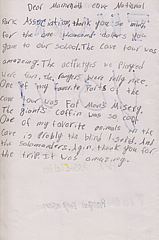 Dear Mammoth cave National
Park Association, thank you so much
for the one thousand dollars you
gave to our school. The cave tour was
amazeing. The activitys we played
were fun, the rangers were really nice.
One of my favorite parts of the
cave tour was Fat Man's Misery.
The giants coffin was so cool.
One of my favorite animals in the
cave is probly the blind
And the salamanders. Agin, thank you for
the trip. It was amazing.